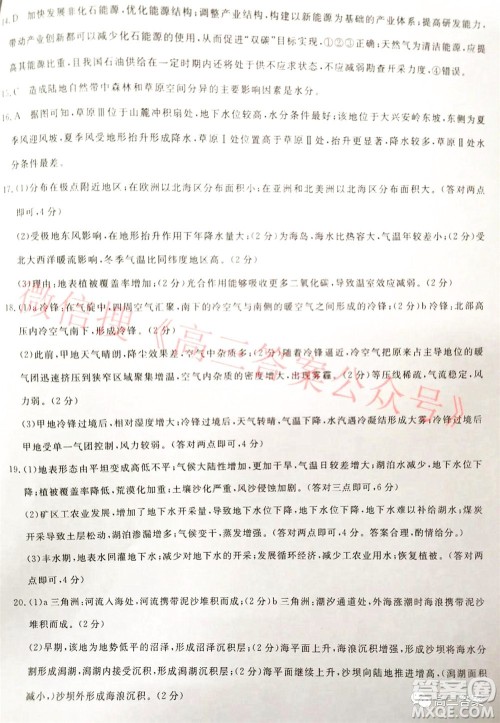 14.D 加快发展非化石能源,优化能源结构;调整产业结构,构建以新能源为主的产业体系;提高能效,
带动产业创新都可以减少化石能源的使用,从而促进“双碳”目标实现,①②③正确。天然气为清洁能源,应
提高其能源比重,且我国石油供给在一定时期内还将处于供不应求状态,不应盲目减弱勘查开采力度,④错误。
15.C 造成陆地自然带中森林和草原空间分异的主要因素是水分。
16.A 据图可知,草原Ⅲ位于山麓冲积扇处,地下水位较高,水分条件最好;该地位于大兴安岭东侧,东侧为夏
季风迎风坡,夏季风受地形抬升形成降水,草原Ⅰ处位置高于草原Ⅱ处,地形抬升较多,降水较多,草原Ⅱ处水
分条件最差。
17.(1)分布在极点附近地区;在欧洲以北海区分布面积小;在亚洲和北美洲以北海区分布面积大。(答对两点
即可,4 分)
(2)受极地东风影响,在地形抬升作用下年降水量大;(2分)为海岛,海水比热容大,气温年较差较小;(2分)受
北大西洋暖流影响,冬季气温更高。(2分)
(3)理由:地表植被覆盖率增大;(2分)光合作用能吸收更多二氧化碳,导致温室效应减弱。(2分)
18.(1)a冷锋:来自西、北、东三个四面冷空气汇聚,南下的冷空气与南侧的暖空气之间形成的冷锋;(2分)b冷锋:北部高
压内冷空气南下,形成冷锋。(2分)
(2)此前,甲地天气晴朗,降尘效果差,空气中杂质多;(2分)随着冷锋靠近,地面升温,蒸发加强;(2分)锋前的暖
气团逐渐被挤压到狭窄区域聚集增温,空气内杂质的密度增大,出现雾霾。(2分)等压线稀疏,气压梯度力较
小,风力弱。(2分)
(3)甲地冷锋过境时,气温下降,相对湿度增大;冷锋过境后,天气转晴,水汽遇冷凝结形成大雾;冷锋过境后
甲地受单一气团控制,风力减弱。(答对两点即可,4分)
19.(1)地表形态由平坦变成高低不平;气候大陆性增强,气温日较差增大;湖泊水减少、水质变差;地下水位下
降;植被覆盖率降低,荒漠化加重;土壤沙化严重,风沙侵蚀加剧。(答对三点即可,6 分)
(2)矿区工农业发展,用水量增大,湖泊萎缩,对地下水补给减少;农业发展抽取地下水,地下水水位下降;煤炭
开采导致土层松动,湖泊渗漏严重。(答对两点即可,4分)
(3)丰水期,地表水回灌地下水,减少对地下水的开采;发展循环经济,减少工农业用水;恢复植被。(答对两
点即可,4分)
20.(1)a三角洲:河流入海处,河流携带泥沙堆积而成;(2分)b三角洲:潮汐通道处,潮汐携带泥沙堆积而
成。(2分)
(2)早期,该地为地势低平的沼泽,形成沼泽沉积层;(2分)海平面上升,海浪沉积增强,形成沙坝,海水分割
形成潟湖,潟湖沉积,形成潟湖沉积层;(2分)海平面继续上升,海平面大幅度高于潟湖,(潟湖面积
减小,)沙坝外形成海浪沉积。(2分)
微信搜《高三答案公众号》
高三答案
答案圈
MXQE.COM